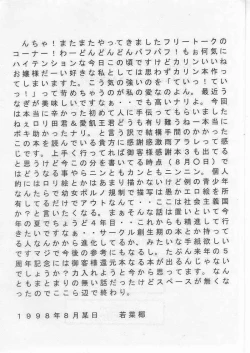 んちゃ！またまたやってきましたフリートークの
コーナー！わーどんどんどんパフパフ！もお何気に
ハイテンションな今日この頃ですけどカリンいいね
お嬢様だーい好きな私としては思わずカリン本作っ
てしまいますた。こう気の強いのを「ていっ！てい
っ！」って苛めちゃうのが私の愛なのよん。最近う
なぎが美味しいですなぁ・・でも高いナリよ。今回
は本当に辛かった初めて人に手伝ってもらいました
ねぇロリ田君＆愛凱王君どうも有り難うねー本当に
ボキ助かったナリ。と言う訳で結構手間のかかった
この本を読んでいる貴方に感謝感激雨アラレって感
じです。上手く行ってれば御客様感謝本３も出てる
と思うけど今この分を書いてる時点（８月〇日）で
はどうなる事やらニンともカンともニンニン。個人
的にはロリ絵とかはあまり描かないけど例の青少年
なんたらで幼女ポルノ規制で猫写は愚かエロ絵を所
有してるだけでアウトなんて・・ここは社会主義国
か？と言いたくなる。まぁそんな話は置いといて今
年の夏でちょうど４年目・・これからも精進して行
きたいですなぁ・・サークル創生期の本とか持って
る人なんかから進化してるか、みたいな手紙欲しい
ですマジで今後の参考にもなるし。たぶん来年の５
周年記念には御客様還元本なる本が出るんじゃない
でしょうか？力入れようと今から思ってます。なん
ともまとまりの無い話だったけどスペースが無くな
ったのでここら辺で終わり。
１９９８年８月某日　若菜郷